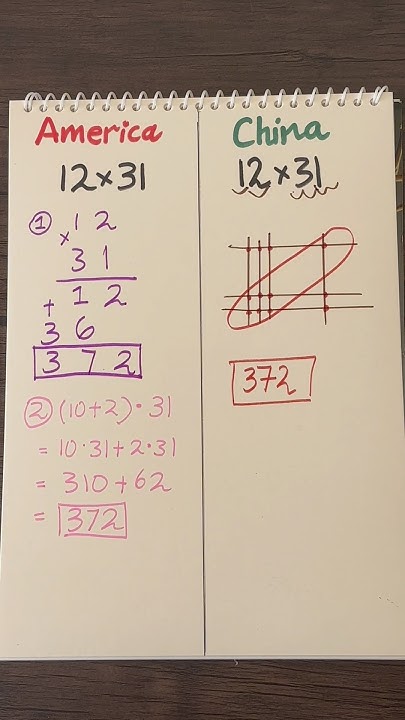 America
12×31
① 12
× 31
+ 12
36
372
② (10+2)·31
= 10·31+2·31
= 310+62
= 372
China
12×31
372